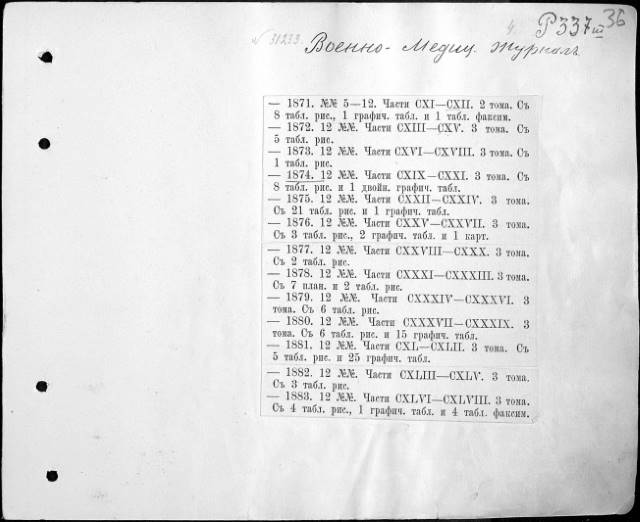 № 31233. 4. Р337 III 36
Военно-Медиц. журналъ
— 1871. №№ 5—12. Части CXI—CXII. 2 тома. Съ
8 табл. рис., 1 графич. табл. и 1 табл. факсим.
— 1872. 12 №№. Части CXIII—CXV. 3 тома. Съ
5 табл. рис.
— 1873. 12 №№. Части CXVI—CXVIII. 3 тома. Съ
1 табл. рис.
— 1874. 12 №№. Части CXIX—CXXI. 3 тома. Съ
8 табл. рис. и 1 двойн. графич. табл.
— 1875. 12 №№. Части CXXII—CXXIV. 3 тома.
Съ 21 табл. рис. и 1 графич. табл.
— 1876. 12 №№. Части CXXV—CXXVII. 3 тома.
Съ 3 табл. рис., 2 графич. табл. и 1 карт.
— 1877. 12 №№. Части CXXVIII—CXXX. 3 тома.
Съ 2 табл. рис.
— 1878. 12 №№. Части CXXXI—CXXXIII. 3 тома.
Съ 7 план. и 2 табл. рис.
— 1879. 12 №№. Части CXXXIV—CXXXVI. 3
тома. Съ 6 табл. рис.
— 1880. 12 №№. Части CXXXVII—CXXXIX. 3
тома. Съ 6 табл. рис. и 15 графич. табл.
— 1881. 12 №№. Части CXL—CXLII. 3 тома. Съ
5 табл. рис. и 25 графич. табл.
— 1882. 12 №№. Части CXLIII—CXLV. 3 тома.
Съ 3 табл. рис.
— 1883. 12 №№. Части CXLVI—CXLVIII. 3 тома.
Съ 4 табл. рис., 1 графич. табл. и 4 табл. факсим.